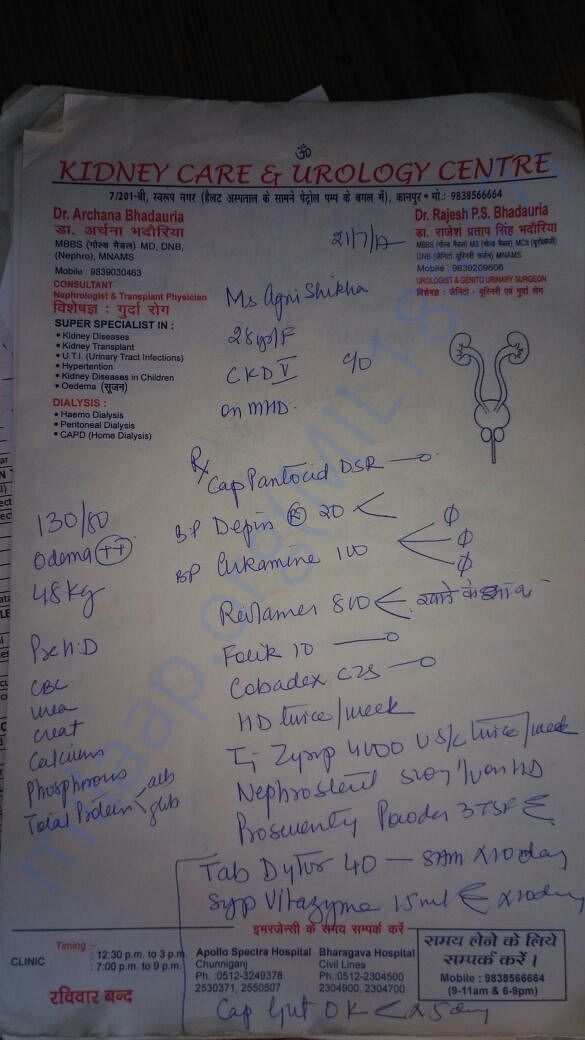 ॐ
KIDNEY CARE & UROLOGY CENTRE
7/201-बी, स्वरूप नगर (हैलट अस्पताल के सामने पेट्रोल पम्प के बगल में), कानपुर • मो.: 9838566664
Dr. Archana Bhadauria
डा. अर्चना भदौरिया
MBBS (गोल्ड मैडल) MD, DNB,
(Nephro), MNAMS
Mobile : 9839030463
CONSULTANT
Nephrologist & Transplant Physician
विशेषज्ञ : गुर्दा रोग
SUPER SPECIALIST IN :
• Kidney Diseases
• Kidney Transplant
• U.T.I. (Urinary Tract Infections)
• Hypertention
• Kidney Diseases in Children
• Oedema (सूजन)
DIALYSIS :
• Haemo Dialysis
• Peritoneal Dialysis
• CAPD (Home Dialysis)
Dr. Rajesh P.S. Bhadauria
डा. राजेश प्रताप सिंह भदौरिया
MBBS (गोल्ड मैडल) MS (गोल्ड मैडल), MCh (यूरोलॉजी)
DNB (जेनिटो यूरिनरी सर्जन) MNAMS
Mobile : 9839209606
UROLOGIST & GENITO URINARY SURGEON
विशेषज्ञ : जैनिटो - यूरिनरी एवं गुर्दा रोग
21/7/17
Ms Agni Shikha
28yr/F
CKD V c/o
on MHD.
Rx
Cap Pantocid DSR — o
BP Depin R 20
BP Arkamine 100
Revlamer 800
Folik 10 — o
Cobadex CZS — o
HD twice/week
Inj Zyrop 4000 U S/C twice/week
Powder 3 TSF
Tab Dytor 40 — 8AM x 10 day
Syp Vitazyme 15ml x 10 day
Cap Gut OK < x 5 day
130/80
Odema ++
48 Kg
CBC
urea
creat
Calcium
Phosphorous
Total Protein alb
glob
इमरजेन्सी के समय सम्पर्क करें
CLINIC
Timing :-
: 12:30 p.m. to 3 p.m.
: 7:00 p.m. to 9 p.m.
रविवार बन्द
Apollo Spectra Hospital
Chunniganj
Ph. :0512-3249378
2530371, 2550507
Bhargava Hospital
Civil Lines
Ph.:0512-2304500
2304900, 2304700
समय लेने के लिये
सम्पर्क करें।
Mobile : 9838566664
(9-11am & 6-9pm)